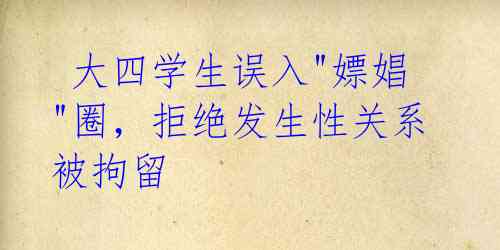 大四学生误入"嫖娼
"圈，拒绝发生性关系
被拘留